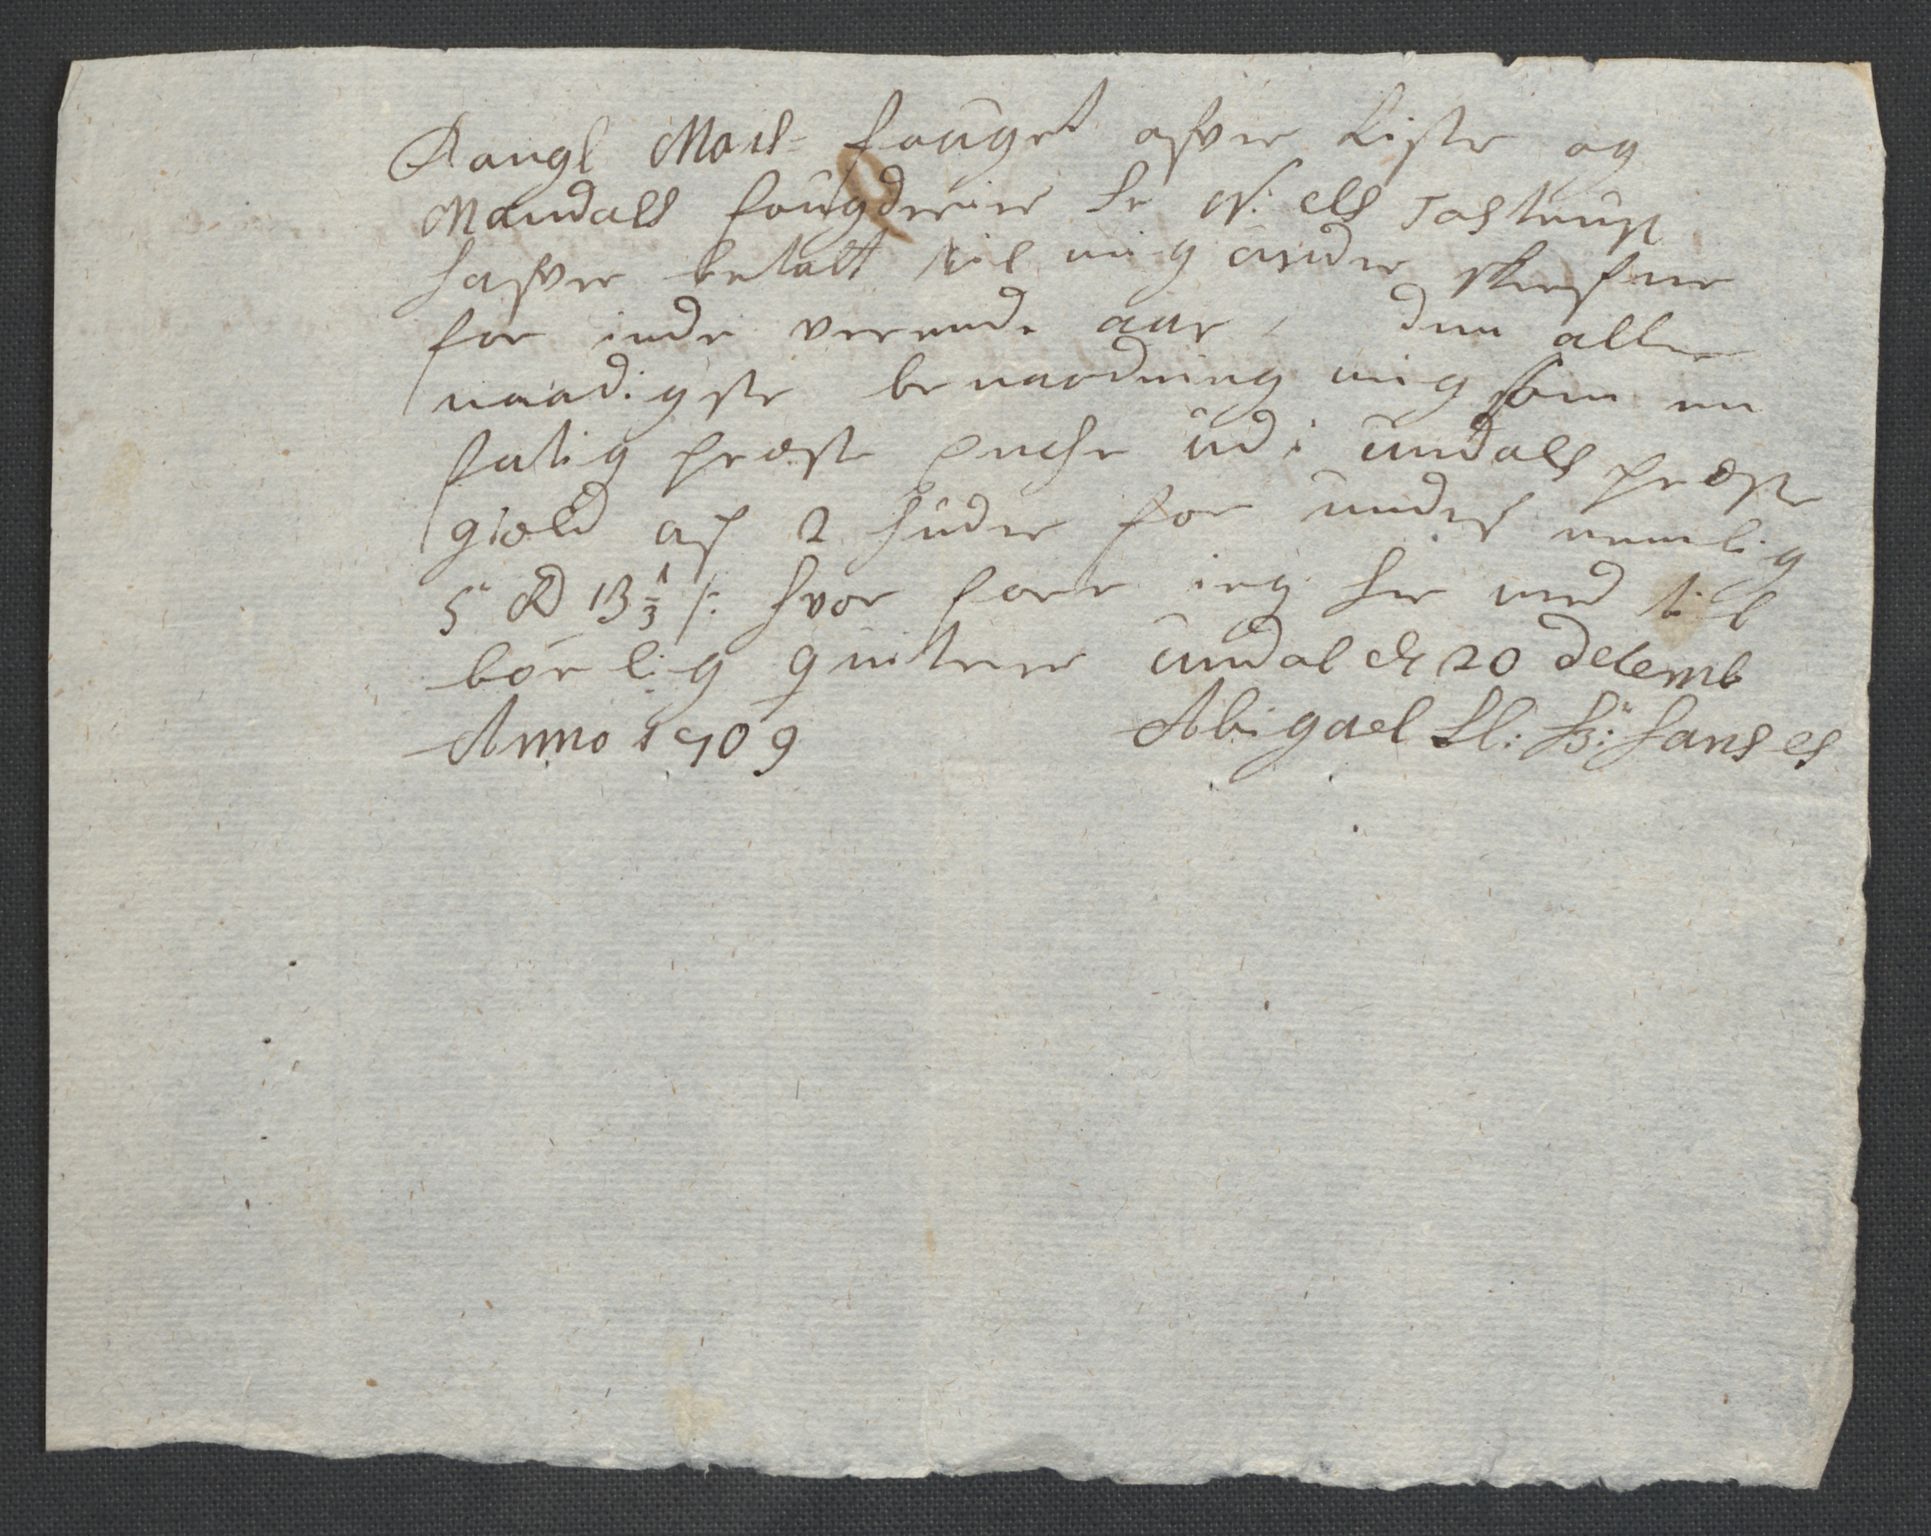 Kongl Mais fouget ofver Lister og
Mandals fougderier Sr Niels Tostrup
hafver betalt til mig under skrefne
for inde verende aar, den aller
naadigste benaadning mig som en
fatig præste enche ud i undals præste
gield af 2 huder for undt nemlig
5 Rd 13 1/3 s: hvor fore ieg her med til
børlig quiterer undal d 20 decemb
Anno 1709 Abigael Sl: Hr: Hanses